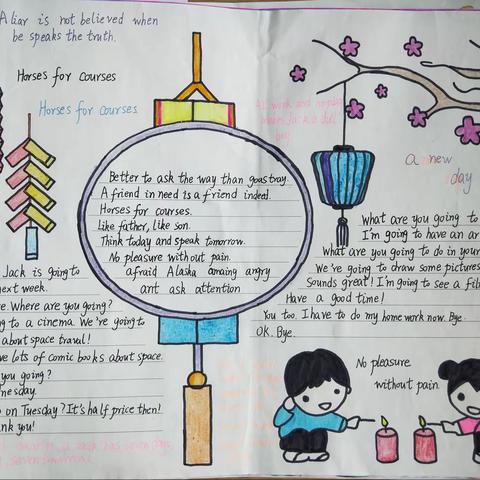 A liar is not believed when
he speaks the truth.
Horses for courses
Horses for courses
Better to ask the way than go astray.
A friend in need is a friend indeed.
Horses for courses.
Like father, like son.
Think today and speak tomorrow.
No pleasure without pain.
afraid Alaska amazing angry
ant ask attention
Jack is going to
next week.
Where are you going?
ng to a cinema. We're going to
about space travel!
ve lots of comic books about space.
you going?
nesday.
on Tuesday? It's half price then!
ank you!
All work and no play
makes Jack a dull
boy
a new
day
What are you going to
I'm going to have an ar
What are you going to do in your
We're going to draw some pictures
Sounds great! I'm going to see a fil
Have a good time!
You too. I have to do my homework now. Bye.
OK. Bye.
No pleasure
without pain.